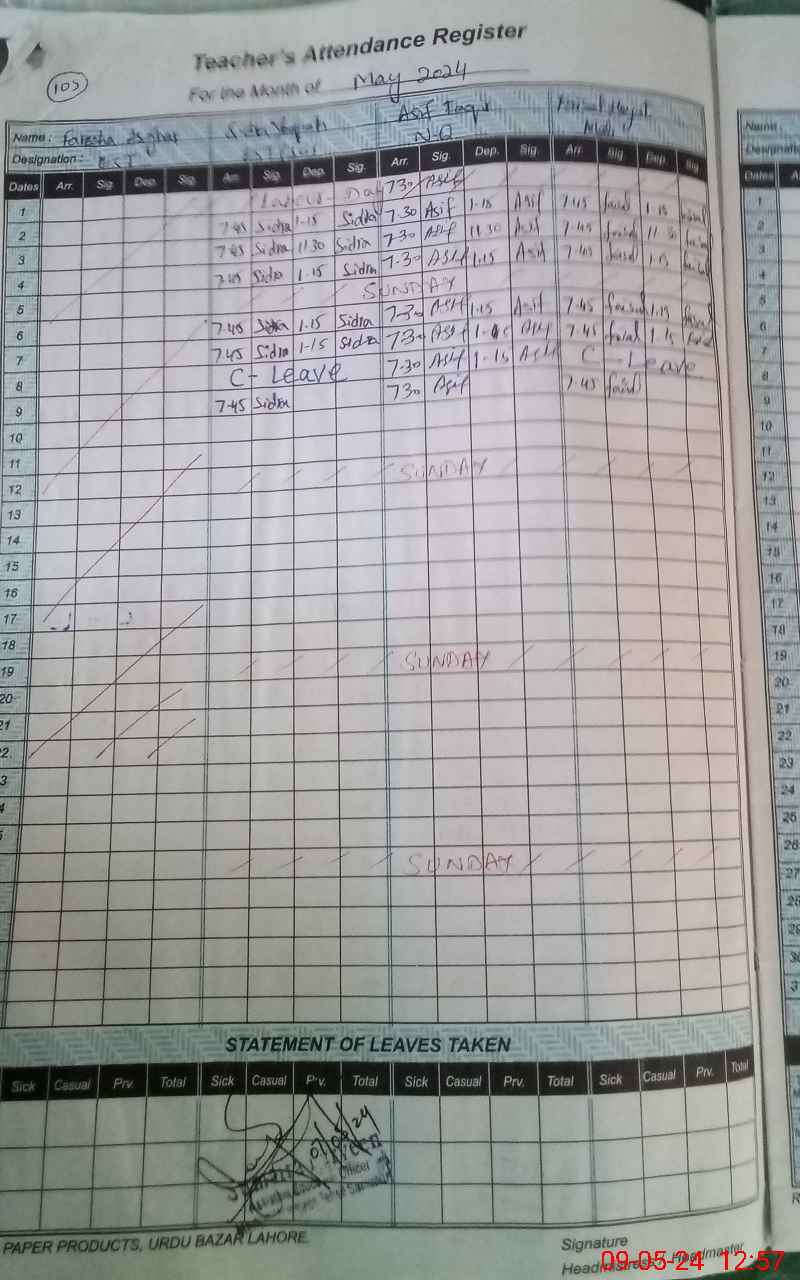 Teacher's Attendance Register
105
For the Month of May 2024
Name : Asif
Designation : EST N-Q
Dates Arr. Sig. Dep. Sig. Arr. Sig. Dep. Sig. Arr. Sig. Dep. Sig. Arr. Sig. Dep. Sig.
1 Day 730 Asif
2 7.45 Sidra 1.15 Sidra 7.30 Asif 1.15 Asif 7.45 1.15
3 7.45 Sidra 11.30 Sidra 7.30 Asif 11.30 Asif 7.45 11.30
4 7.45 Sidra 1.15 Sidra 7.30 Asif 1.15 Asif 7.45 1.15
5 SUNDAY
6 7.45 Sidra 1.15 Sidra 7.30 Asif 1.15 Asif 7.45 1.15
7 7.45 Sidra 1-15 Sidra 730 Asif Asif 7.45 1.15
8 C-Leave 7.30 Asif 1-15 Asif C-Leave
9 7.45 Sidra 730 Asif 7.45
10
11
12 SUNDAY
13
14
15
16
17
18
19 SUNDAY
20
21
22
3
4
5
SUNDAY
STATEMENT OF LEAVES TAKEN
Sick Casual Prv. Total Sick Casual Prv. Total Sick Casual Prv. Total Sick Casual Prv. Total
07/05/24
Officer
PAPER PRODUCTS, URDU BAZAR LAHORE.
Signature
Headmistress - Headmaster
09-05-24 12:57
Name
Dates
1
2
3
4
5
6
7
8
9
10
11
12
13
14
15
16
17
18
19
20
21
22
23
24
25
26
27
28
29
30